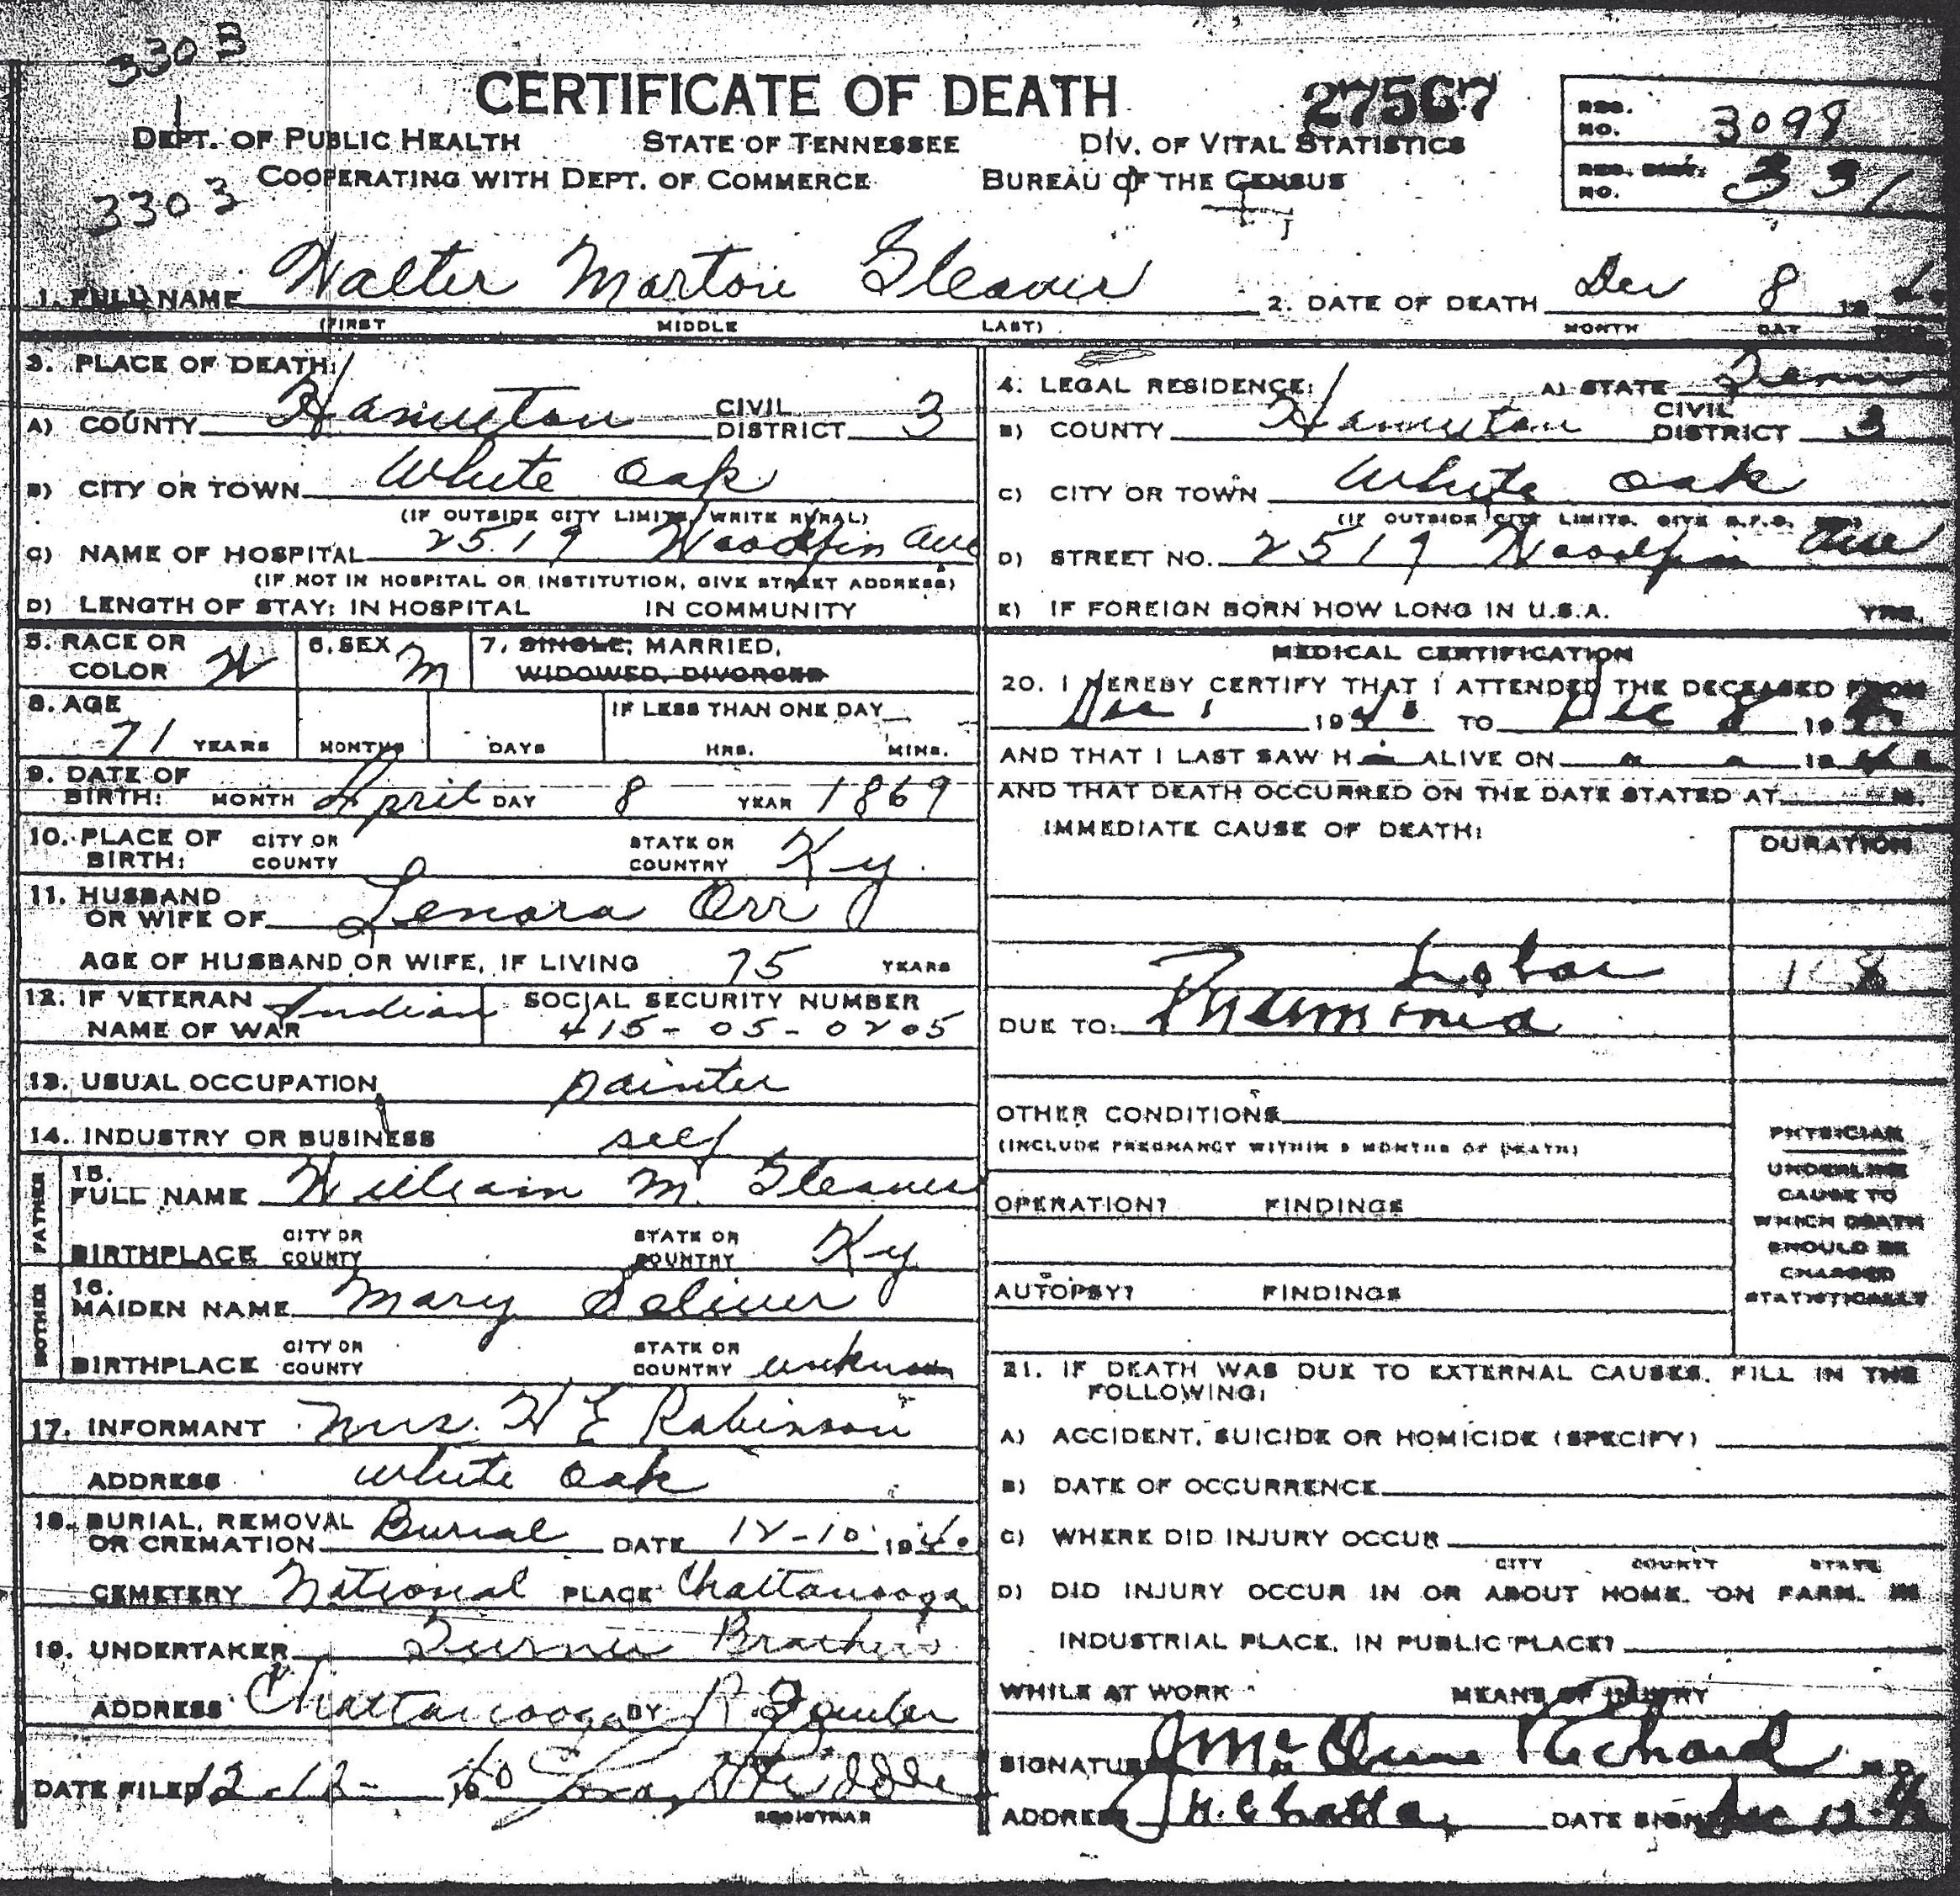 3303
CERTIFICATE OF DEATH 27567 REG. NO. 3098
DEPT. OF PUBLIC HEALTH STATE OF TENNESSEE DIV. OF VITAL STATISTICS
COOPERATING WITH DEPT. OF COMMERCE BUREAU OF THE CENSUS REG. DIST. NO. 331
3303
1. FULL NAME Walter Morton Gleaver 2. DATE OF DEATH Dec 8 19
(FIRST MIDDLE LAST) MONTH DAY
3. PLACE OF DEATH:
A) COUNTY Hamilton CIVIL DISTRICT 3
B) CITY OR TOWN White Oak
(IF OUTSIDE CITY LIMITS, WRITE RURAL)
C) NAME OF HOSPITAL 2519 Woodfin Ave
(IF NOT IN HOSPITAL OR INSTITUTION, GIVE STREET ADDRESS)
D) LENGTH OF STAY: IN HOSPITAL IN COMMUNITY
4. LEGAL RESIDENCE: A) STATE Tenn
B) COUNTY Hamilton CIVIL DISTRICT 3
C) CITY OR TOWN White Oak
(IF OUTSIDE CITY LIMITS, GIVE R.F.D. NO.)
D) STREET NO. 2519 Woodfin Ave
E) IF FOREIGN BORN HOW LONG IN U.S.A. YRS.
5. RACE OR COLOR W 6. SEX M 7. SINGLE, MARRIED,
WIDOWED, DIVORCED
8. AGE 71 YEARS MONTHS DAYS IF LESS THAN ONE DAY HRS. MINS.
9. DATE OF BIRTH: MONTH April DAY 8 YEAR 1869
10. PLACE OF BIRTH: CITY OR COUNTY STATE OR COUNTRY Ky.
11. HUSBAND OR WIFE OF Lenora Orr
AGE OF HUSBAND OR WIFE, IF LIVING 75 YEARS
12. IF VETERAN NAME OF WAR Indian SOCIAL SECURITY NUMBER
415-05-0205
13. USUAL OCCUPATION painter
14. INDUSTRY OR BUSINESS self
FATHER
15. FULL NAME William M. Gleaves
BIRTHPLACE CITY OR COUNTY STATE OR COUNTRY Ky
MOTHER
16. MAIDEN NAME Mary
BIRTHPLACE CITY OR COUNTY STATE OR COUNTRY unknown
17. INFORMANT Mrs. H E Robinson
ADDRESS White Oak
18. BURIAL, REMOVAL OR CREMATION Burial DATE 12-10 1940
CEMETERY National PLACE Chattanooga
19. UNDERTAKER Turner Brothers
ADDRESS Chattanooga BY R
DATE FILED 12-12- 1940
REGISTRAR
MEDICAL CERTIFICATION
20. I HEREBY CERTIFY THAT I ATTENDED THE DECEASED FROM
Dec 1 1940 TO Dec 8 19
AND THAT I LAST SAW H ALIVE ON 19
AND THAT DEATH OCCURRED ON THE DATE STATED AT M.
IMMEDIATE CAUSE OF DEATH: DURATION
Lobar
DUE TO: Pneumonia
OTHER CONDITIONS
(INCLUDE PREGNANCY WITHIN 3 MONTHS OF DEATH)
OPERATION? FINDINGS
AUTOPSY? FINDINGS
PHYSICIAN
UNDERLINE
CAUSE TO
WHICH DEATH
SHOULD BE
CHARGED
STATISTICALLY
21. IF DEATH WAS DUE TO EXTERNAL CAUSES, FILL IN THE
FOLLOWING:
A) ACCIDENT, SUICIDE OR HOMICIDE (SPECIFY)
B) DATE OF OCCURRENCE
C) WHERE DID INJURY OCCUR
CITY COUNTY STATE
D) DID INJURY OCCUR IN OR ABOUT HOME, ON FARM, IN
INDUSTRIAL PLACE, IN PUBLIC PLACE?
WHILE AT WORK MEANS OF INJURY
SIGNATURE M.D.
ADDRESS DATE SIGNED Dec 12